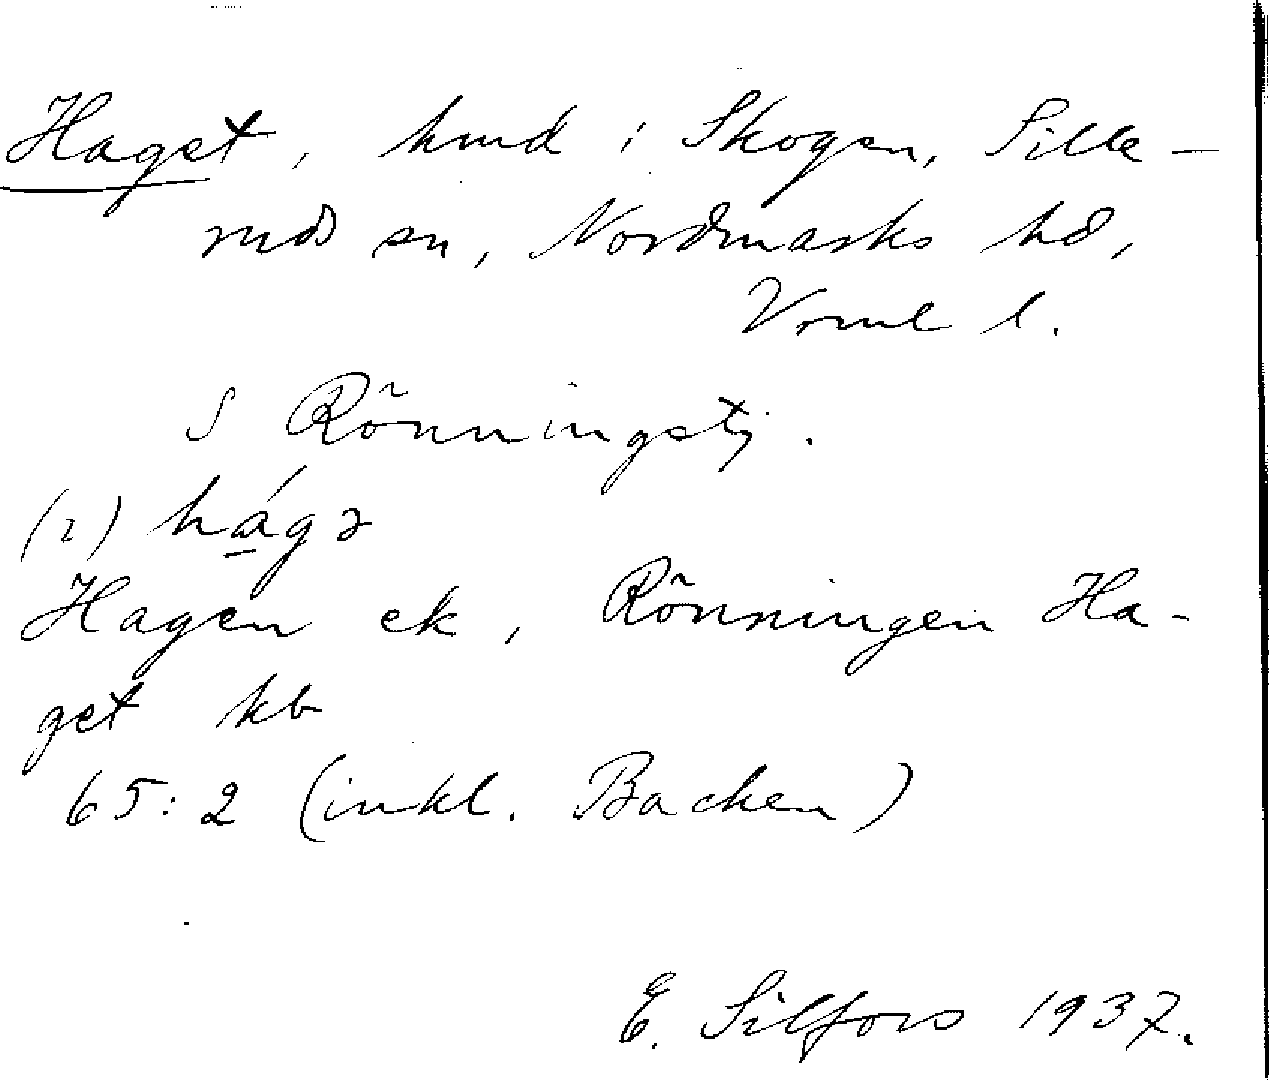 Haget, hmd i Skogen, Sille-
ruds sn, Nordmarks hd,
Vrml l.
S Rönningstj.
(i) hágə
Hagen ek, Rönningen Ha-
get kb
65:2 (inkl. Backen)
E. Silfors 1937.